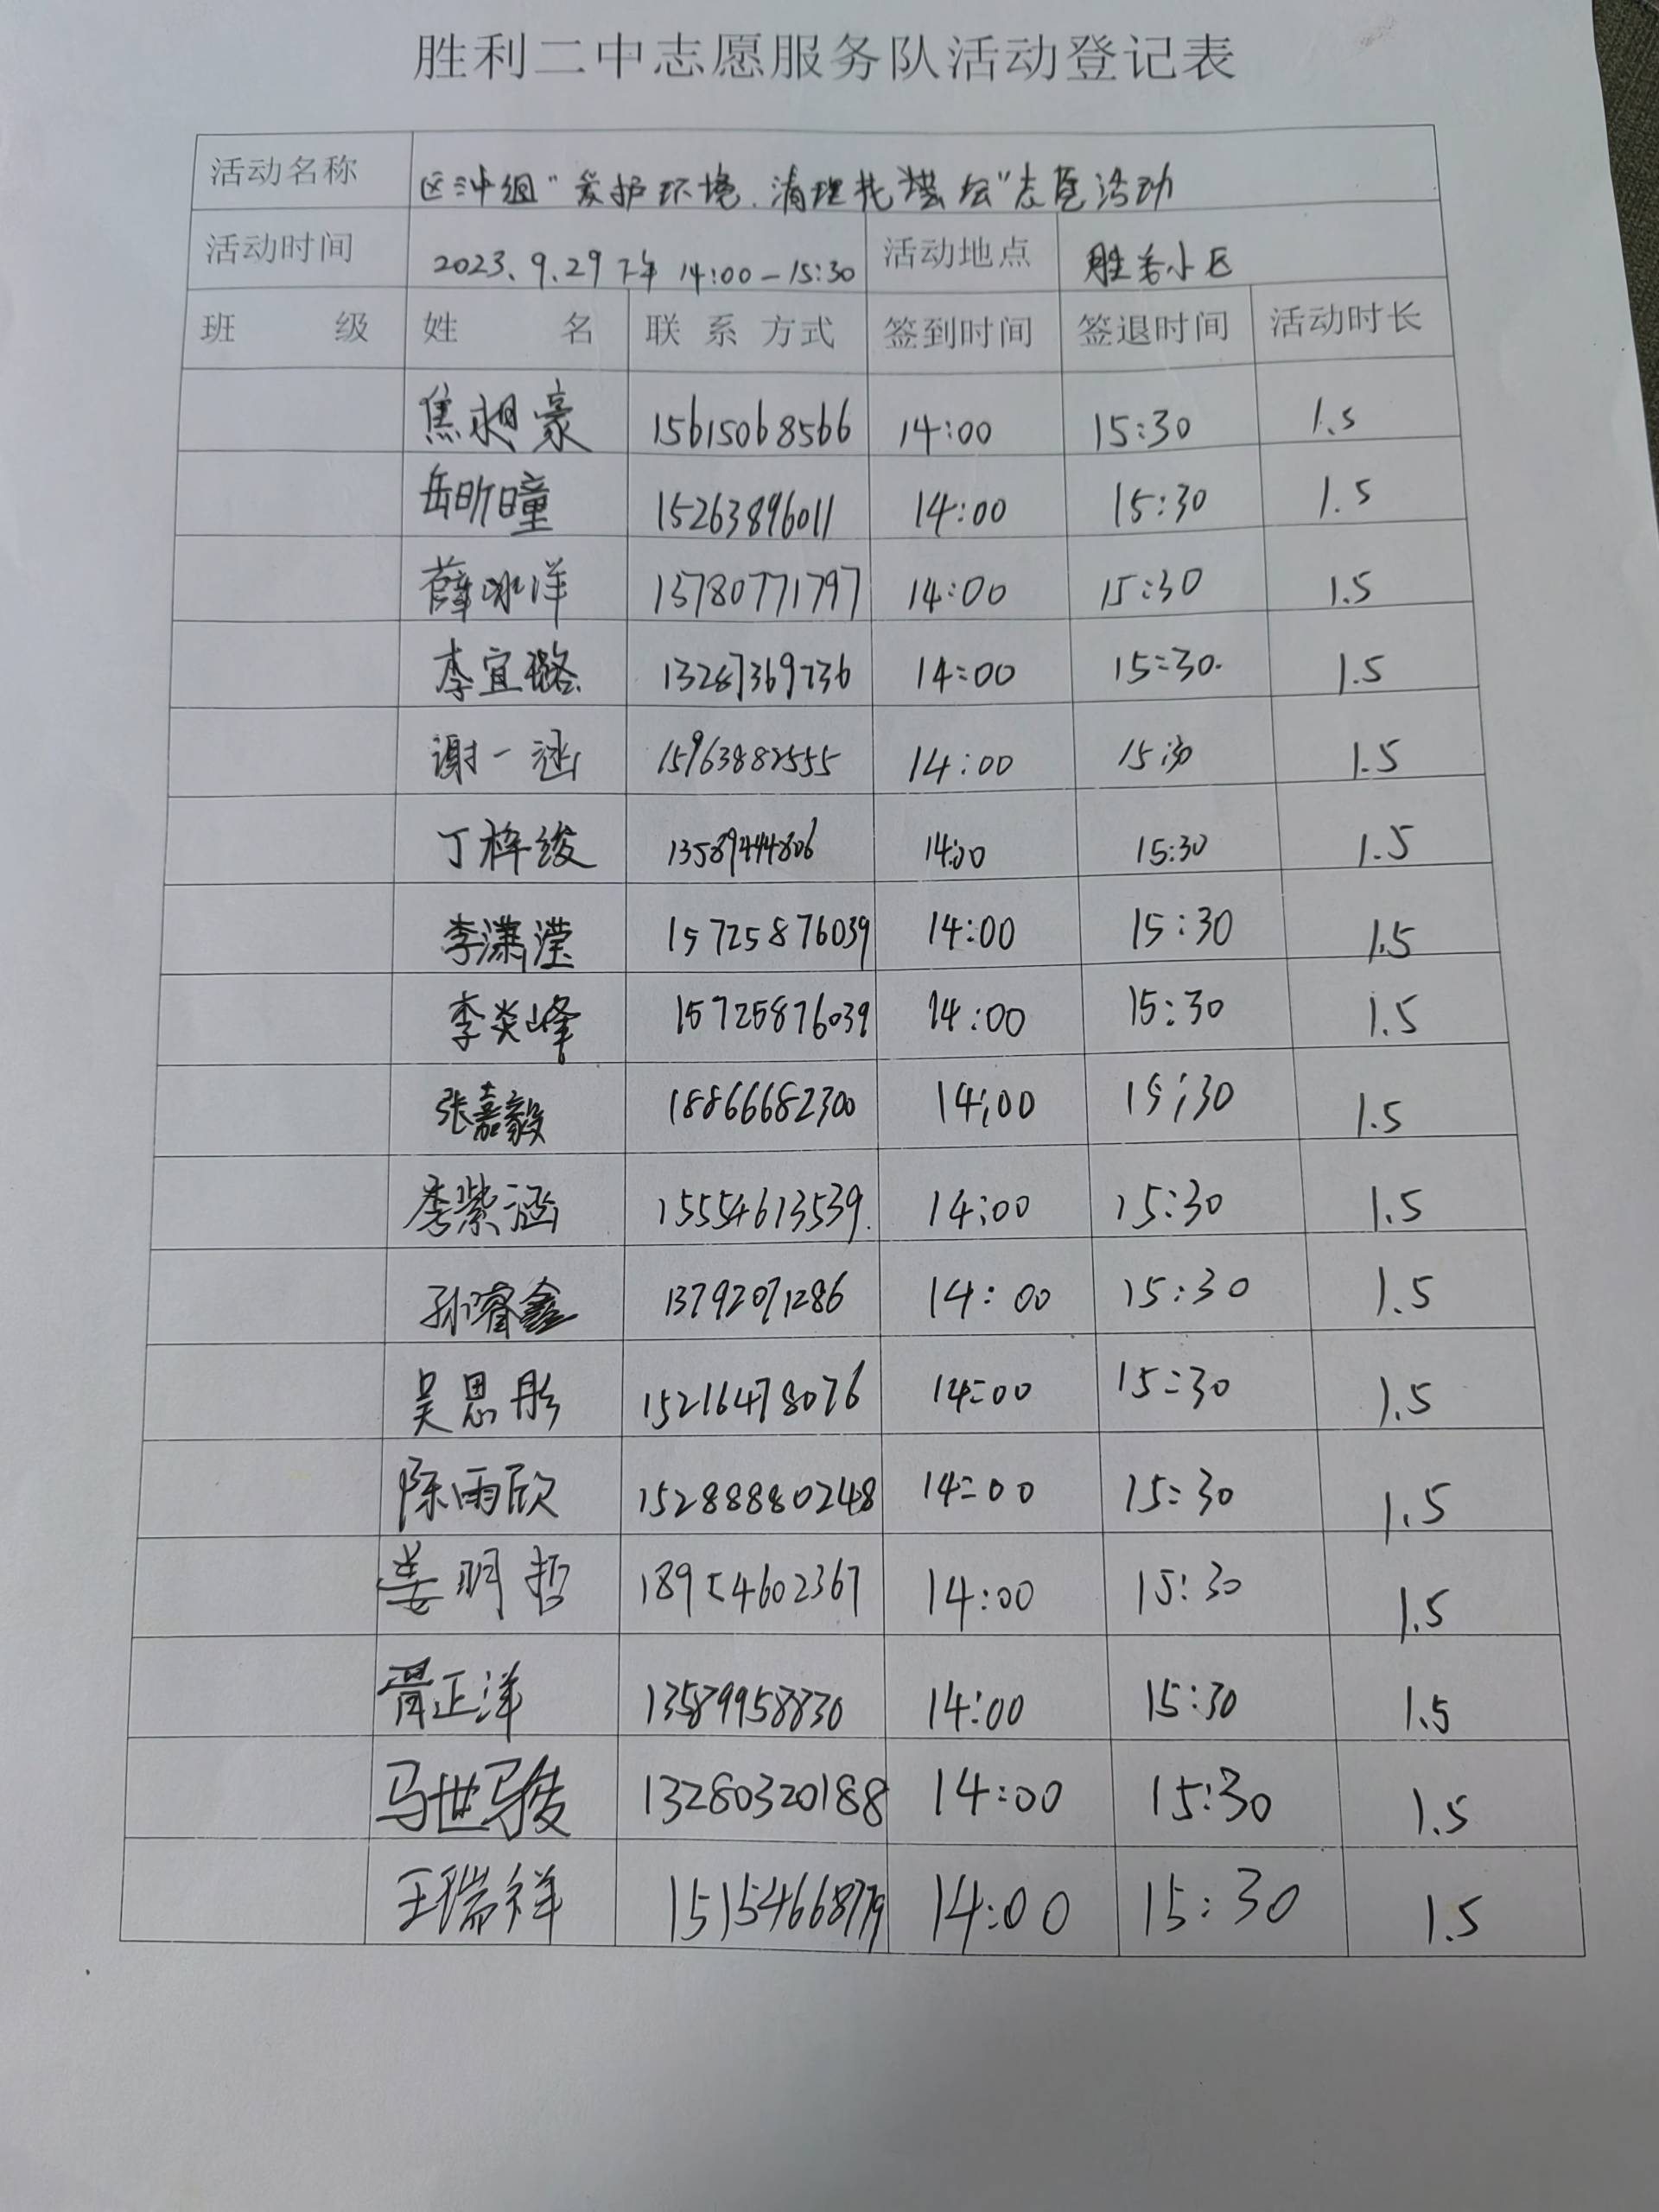 胜利二中志愿服务队活动登记表
活动名称 "爱护环境、清理花坛"志愿活动
活动时间 2023.9.29 下午 14:00-15:30 活动地点 小区
班 级 姓 名 联系方式 签到时间 签退时间 活动时长
焦昶豪 15615068566 14:00 15:30 1.5
岳昕瞳 15263896011 14:00 15:30 1.5
薛冰洋 13780771797 14:00 15:30 1.5
李宜璐 13287369736 14:00 15:30. 1.5
谢一涵 15963882555 14:00 15:30 1.5
丁梓竣 13589444806 14:00 15:30 1.5
李潇滢 15725876039 14:00 15:30 1.5
李炎峰 15725876039 14:00 15:30 1.5
张嘉毅 18866682300 14:00 15:30 1.5
李紫涵 15554613539. 14:00 15:30 1.5
孙睿鑫 13792071286 14:00 15:30 1.5
吴思彤 15216478076 14:00 15:30 1.5
陈雨欣 15288880248 14:00 15:30 1.5
姜明哲 18954602367 14:00 15:30 1.5
胥正洋 13589958830 14:00 15:30 1.5
马世骏 13280320188 14:00 15:30 1.5
王瑞祥 15154668779 14:00 15:30 1.5